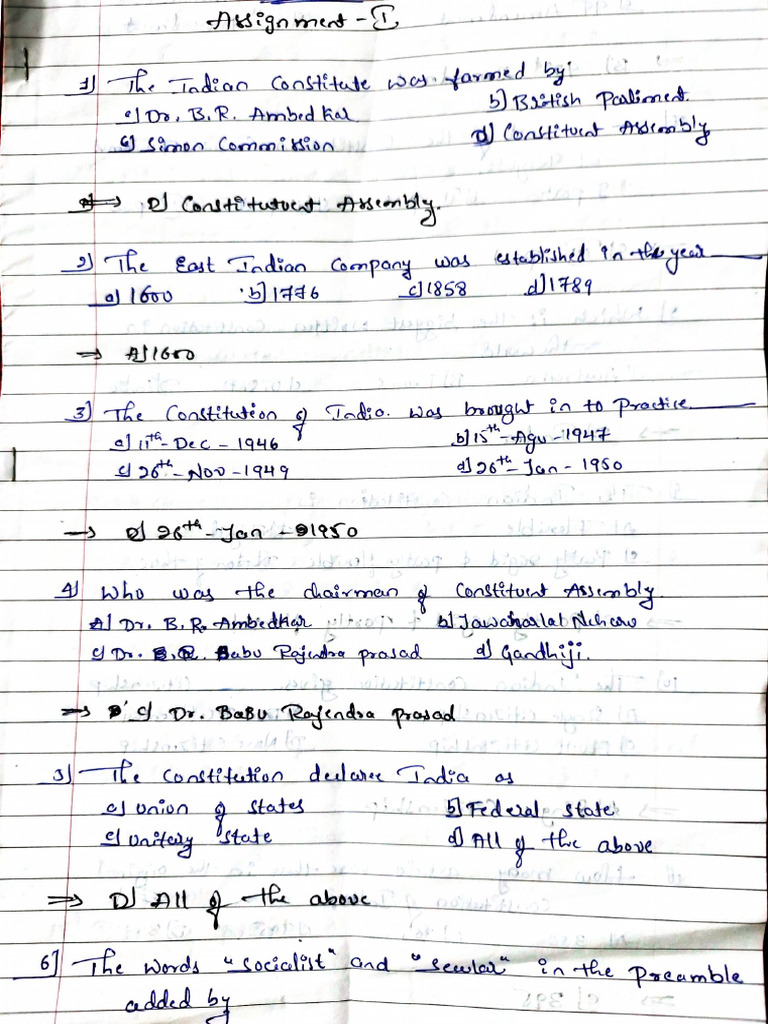 Assignment - I
1) The Indian Constitute was farmed by:
a) Dr. B.R. Ambedkar b) British Parliment.
c) Simon Commission d) Constituent Assembly
=> D) Constitutuent Assembly.
2) The East Indian Company was established in the year
a) 1600 b) 1776 c) 1858 d) 1789
=> A) 1600
3) The Constitution of India. was brought in to Practice
a) 11th - Dec - 1946 b) 15th - Agu - 1947
c) 26th - Nov - 1949 d) 26th - Jan - 1950
→ D) 26th - Jan - 1950
4) Who was the chairman of Constituent Assembly
A) Dr. B.R. Ambedkar b) Jawaharlal Neheru
c) Dr. Babu Rajendra prasad d) Gandhiji.
=> c) Dr. BaBu Rajendra prasad
5) The constitution declaree India as
a) union of states b) Federal state
c) unitery state d) All of the above
=> D) All of the above
6) The words "socialist" and "seculor" in the Preamble
added by